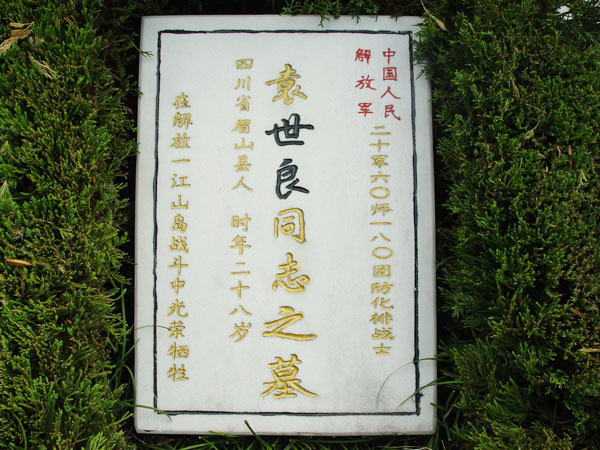 中国人民
解放军
二十军六〇师一八〇团防化排战士
袁世良同志之墓
四川省眉山县人 时年二十八岁
在解放一江山岛战斗中光荣牺牲